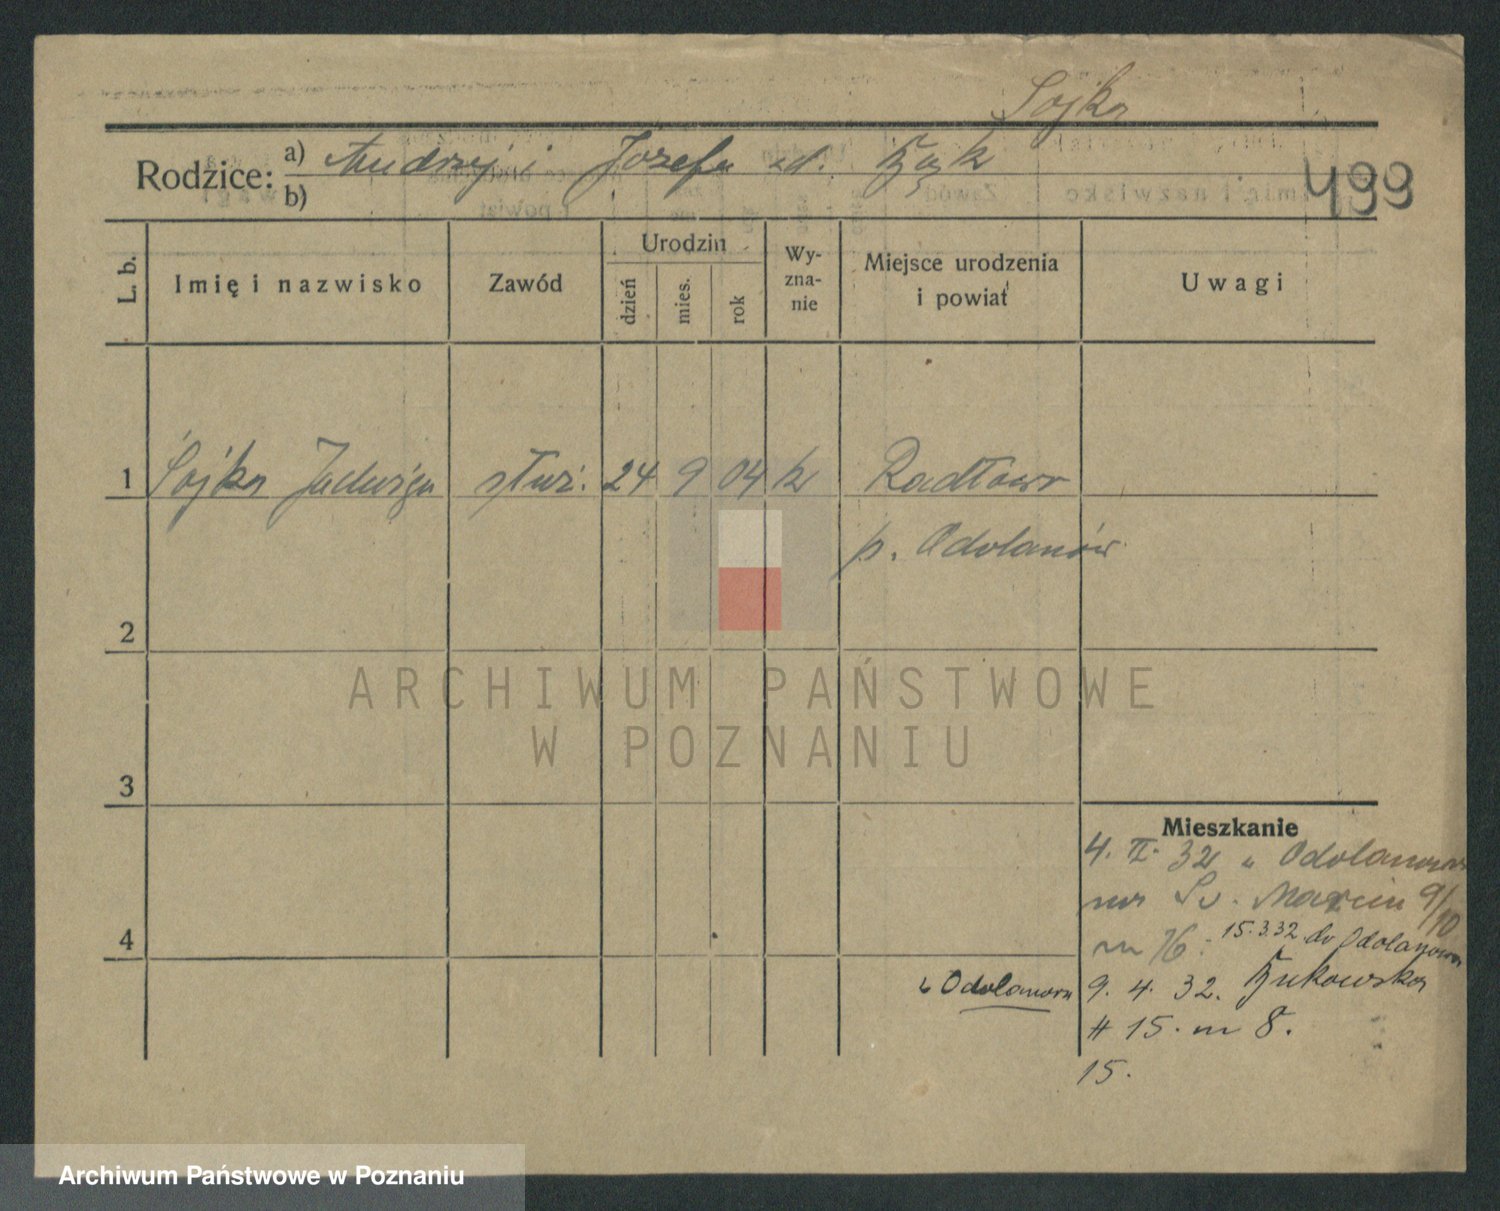 Sojka
Rodzice: a) Andrzej i Józefa zd. Bąk
b)
499
L. b. Imię i nazwisko Zawód Urodzin dzień mies. rok Wyznanie Miejsce urodzenia i powiat Uwagi
1 Sojka Jadwiga służ. 24 9 04 k Radłowo
p. Odolanów
2
3
4
Mieszkanie
4. II. 32 z Odolanowa
na Św. Marcin 9/10
m 16. 15.3.32 do Odolanowa
z Odolanowa 9. 4. 32. Bukowska
# 15. m 8.
15.
ARCHIWUM PAŃSTWOWE
W POZNANIU
Archiwum Państwowe w Poznaniu